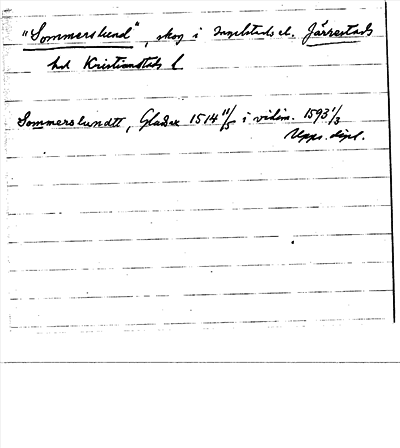 "Sommerslund", skog i Ingelstads el. Järrestads
hd Kristianstads l
Sommerslundtt, Gladsax 1514 11/5 i vidim. 1593 1/3
Upps. dipl.